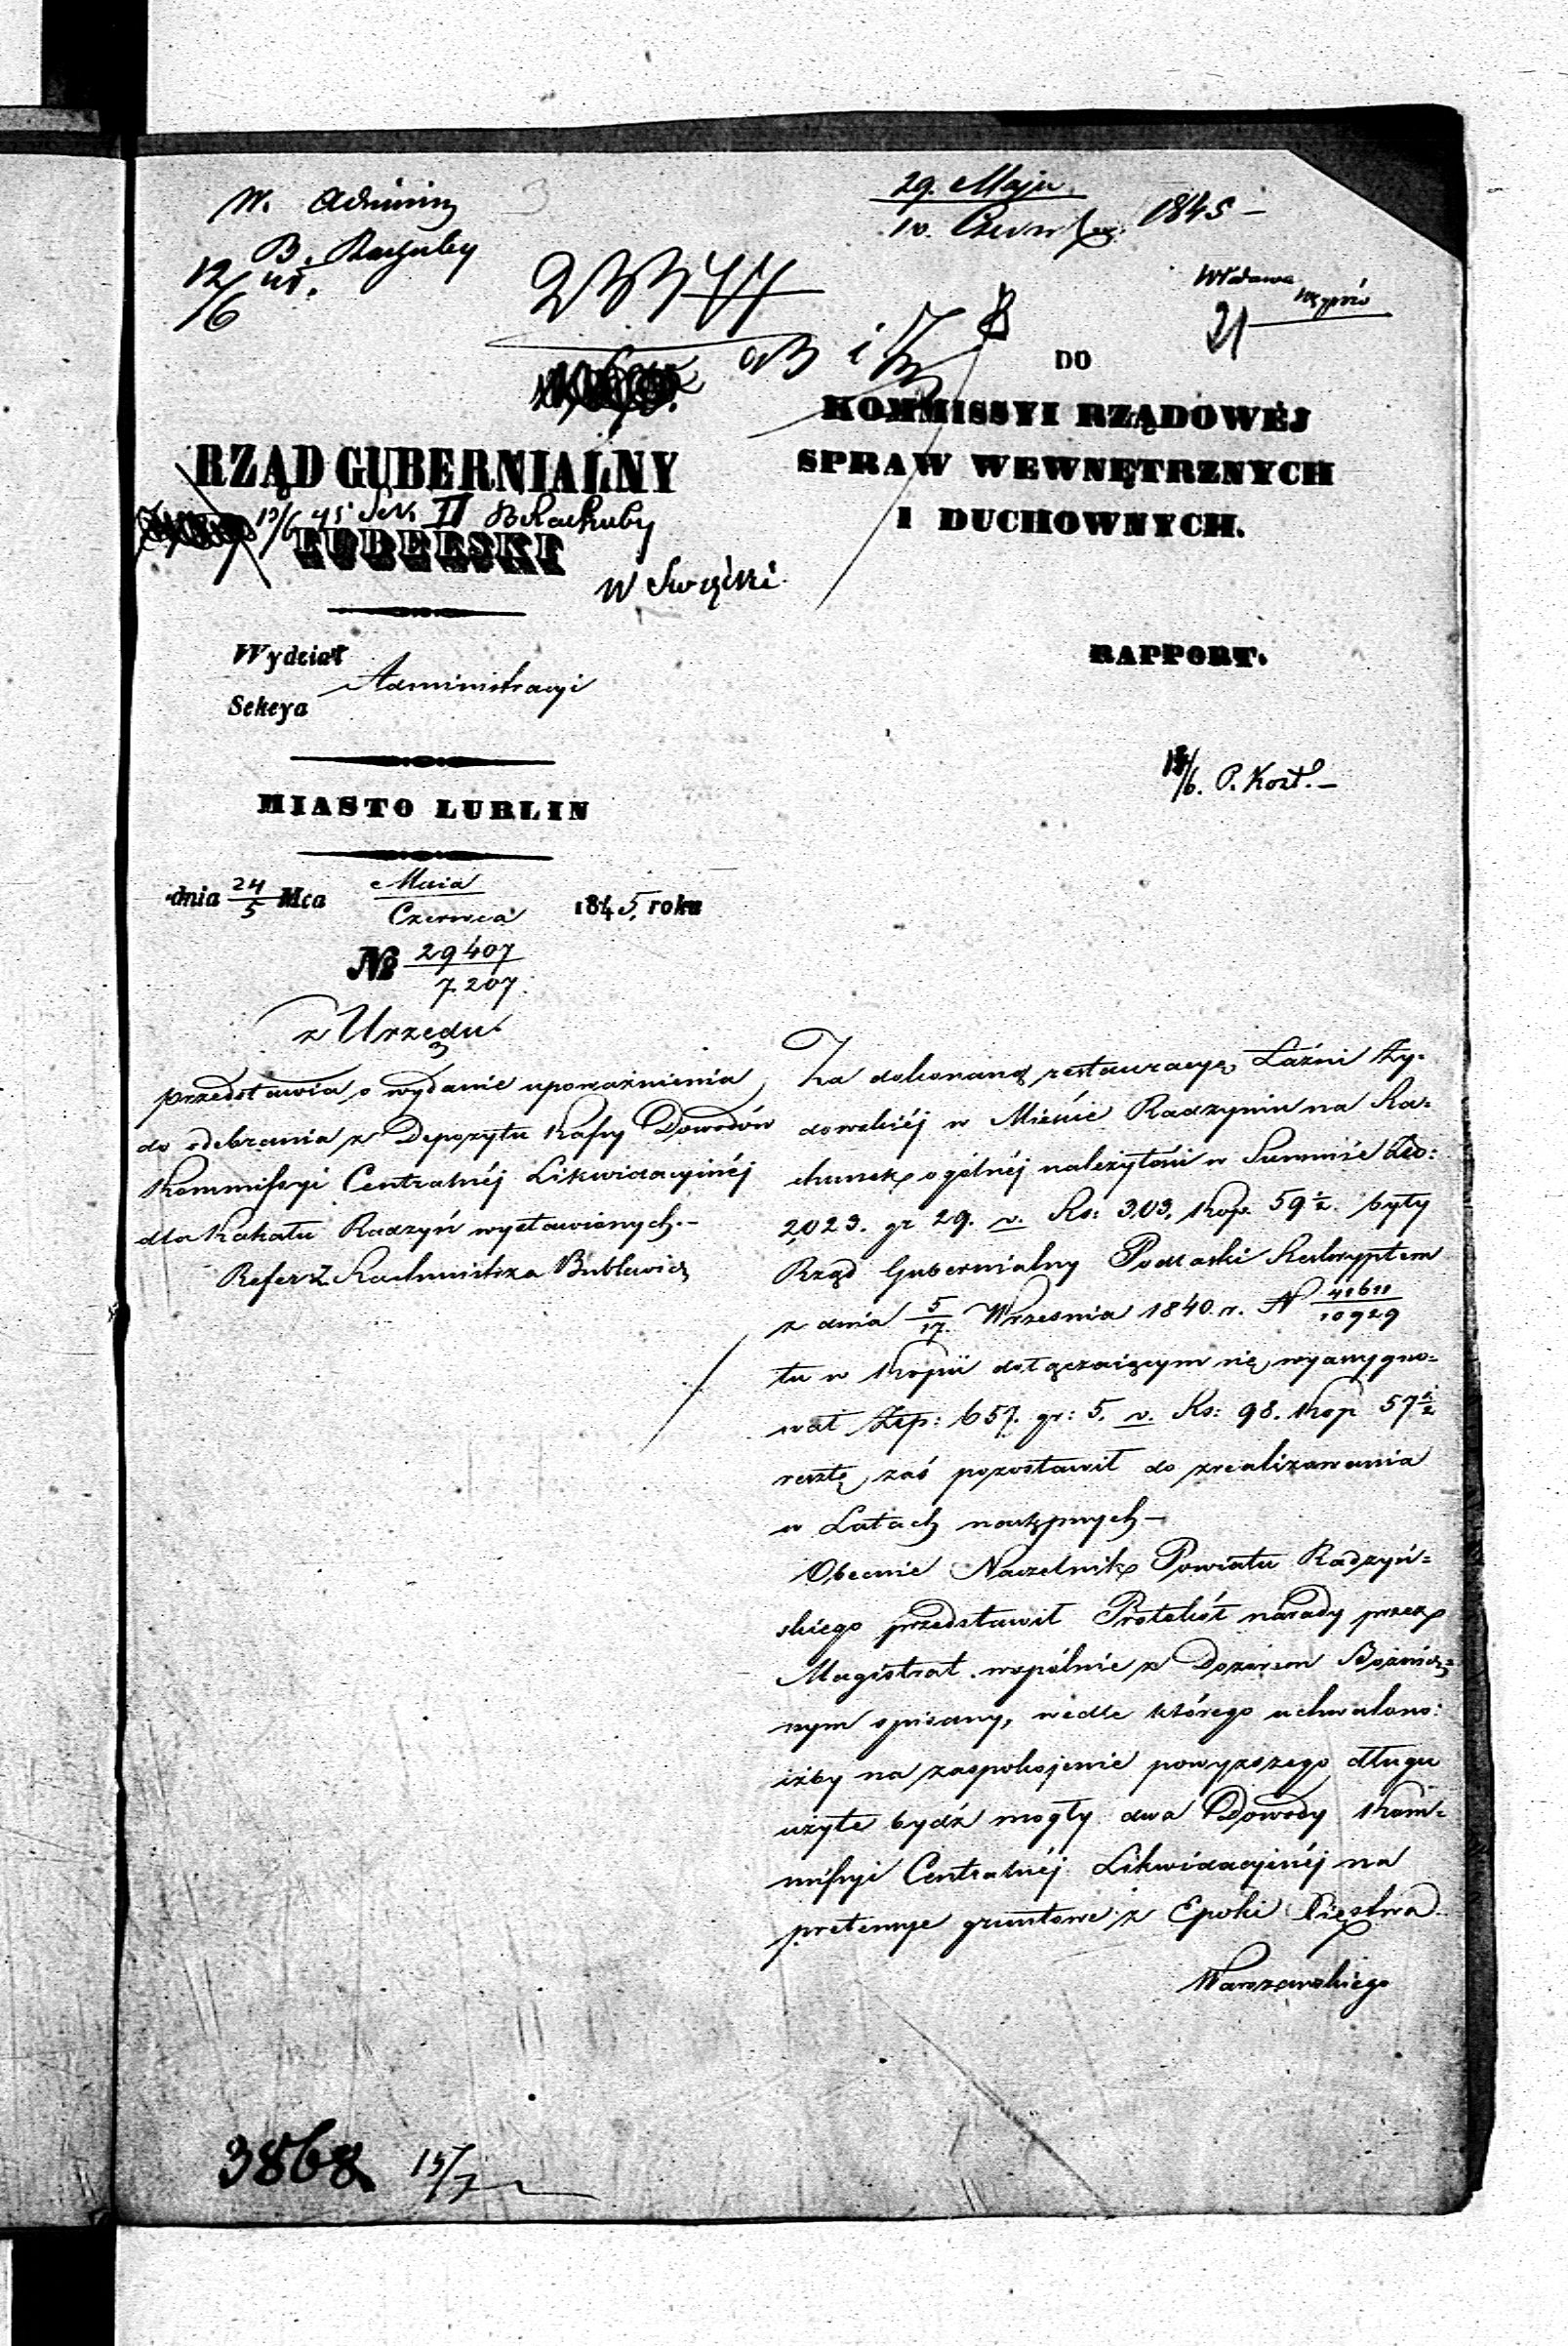 29. Maja
10. Czerwca 1845 –
W. Adminis
B. Rachuby
12/6 45.
23344
21
DO
KOMMISSYI RZĄDOWÉJ
SPRAW WEWNĘTRZNYCH
I DUCHOWNYCH.
RAPPORT.
/6. P. Kozł. –
RZĄD GUBERNIALNY
12/6 45 Sek II B Rachuby
LUBELSKI
Wydział
Administracyi
Sekcya
MIASTO LUBLIN
dnia 24/5 Mca Maia/Czerwca 1845. roku
№ 29407/7.207.
z Urzędu
przedstawia o wydanie upoważnienia
do odebrania z Depozytu Kassy Dowodów
Kommissyi Centralnéj Likwidacyinéj
dla Kahału Radzyń wystawionych. –
Refer Z. Rachmistrza Bublewicz
Za dokonaną restauracyę Łaźni Ży-
dowskiéj w Mieście Radzyniu na Ra-
chunek ogólnéj należytości w Summie Złp:
2,023. gr 29. v. Rs: 303. Kop. 59½. były
Rząd Gubernialny Podlaski Reskryptem
z dnia 5/17. Września 1840. r. N 41611/10929
tu w Kopii dołączaiącym się, wyassygno-
wał Złp: 657. gr: 5. v. Rs: 98. Kop 57½
resztę zaś pozostawił do zrealizowania
w Latach następnych –
Obecnie Naczelnik Powiatu Radzyń-
skiego przedstawił Protokół narady przez
Magistrat wspólnie z Dozorem Bożnicz-
nym spisany, wedle którego uchwalono:
iżby na zaspokojenie powyższego długu
użyte bydź mogły dwa Dowody Kom-
missyi Centralnéj Likwidacyinéj na
pretensye gruntowe z Epoki Xięstwa
Warszawskiego
3868 15/7